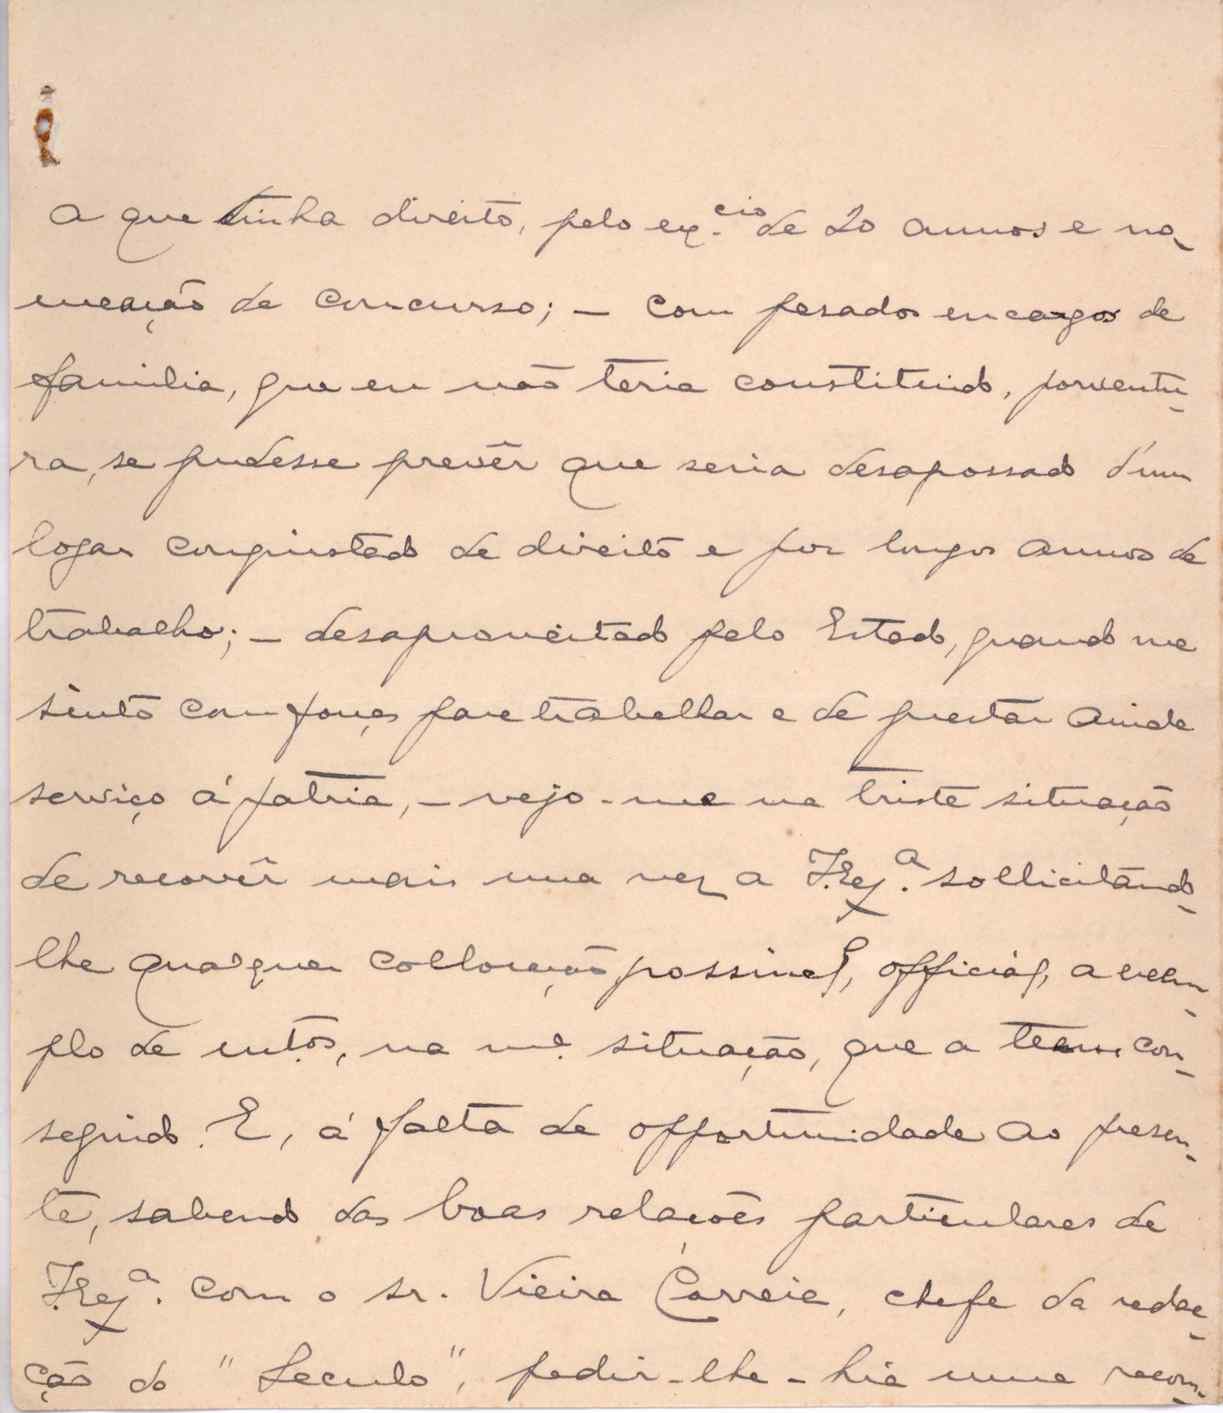 a que tinha direito, pelo ex.cio de 20 annos e no-
meação de concurso; – com pesados encargos de
familia, que eu não teria constituido, porventu-
ra, se pudesse prevêr que seria desapossado d'um
logar conquistado de direito e por longos annos de
trabalho; – desaproveitado pelo Estado, quando me
sinto com forças para trabalhar e de prestar ainda
serviço á patria, – vejo-me na triste situação
de recorrêr mais uma vez a V. Ex.ª sollicitando-
lhe qualquer collocação possivel, official, a exem-
plo de mt.os, na m.ª situação, que a teem con-
seguido. E, á falta de opportunidade ao presen-
te, sabendo das boas relações particulares de
V. Ex.ª. com o sr. Vieira Correia, chefe da redac-
ção do "Seculo", pedir-lhe-hia uma recom-